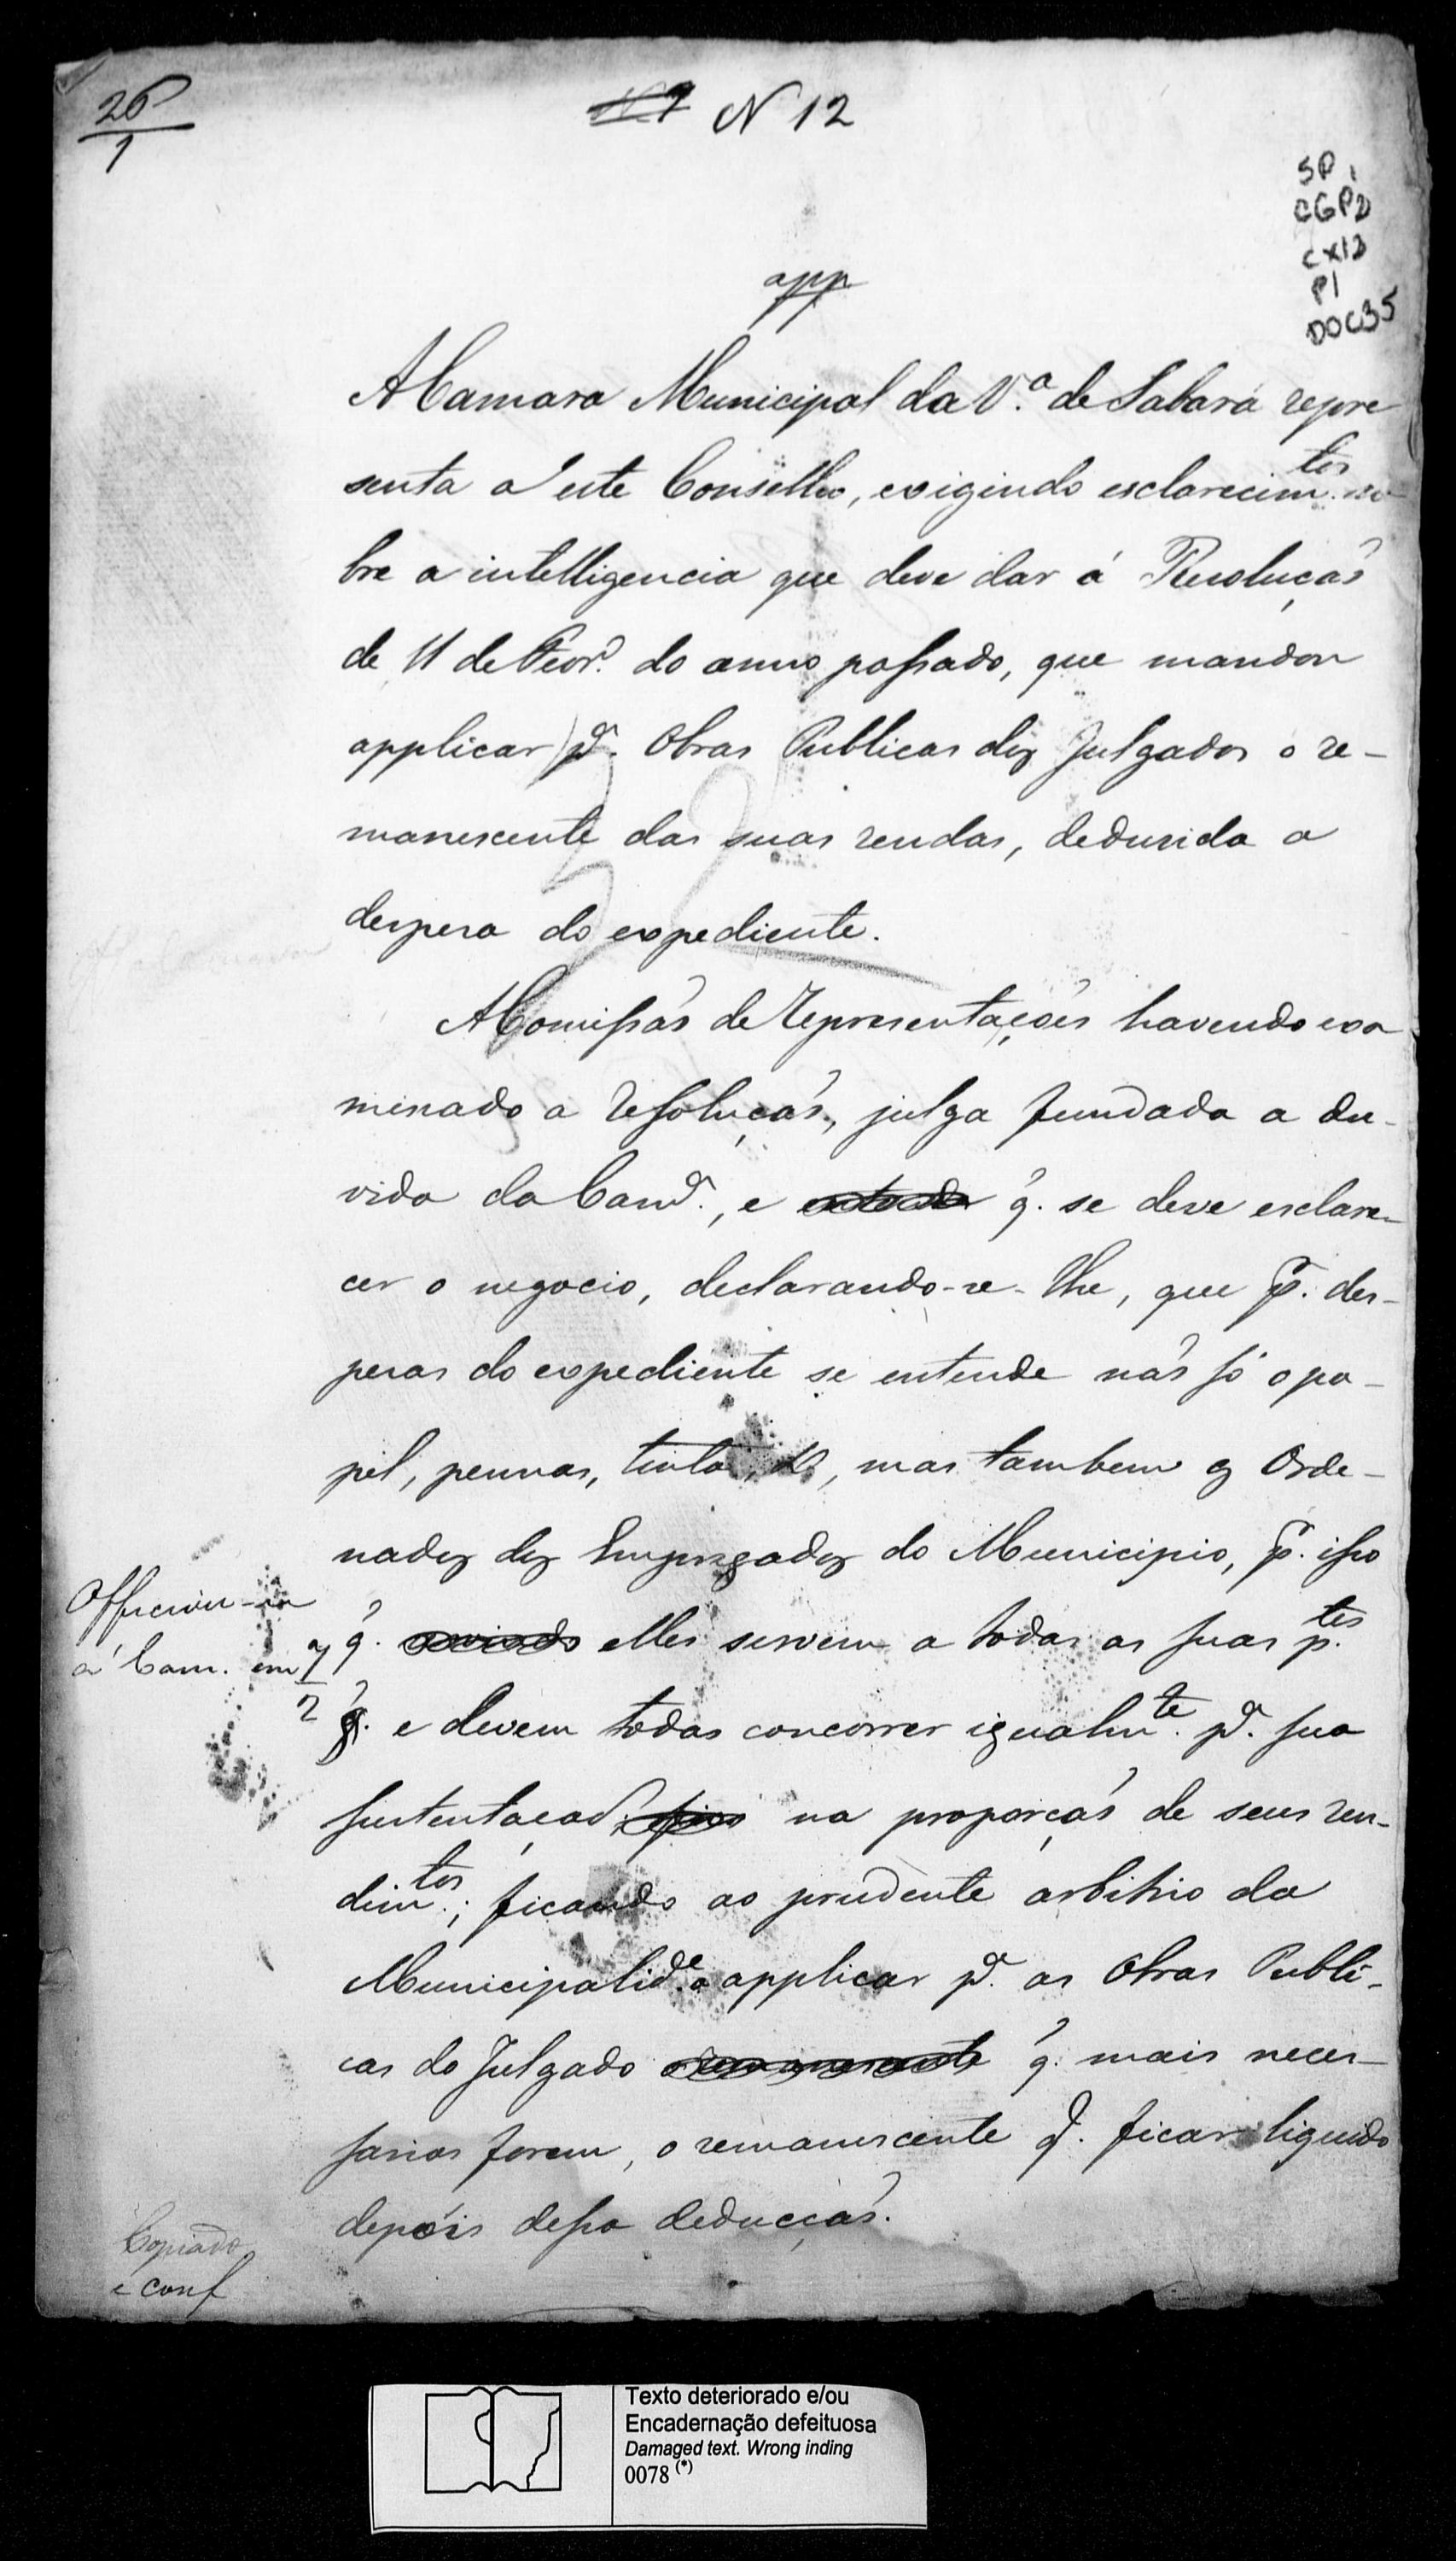 26
1
N 12
SP 1
CGP2
CX13
P1
DOC35
app
A Camara Municipal da V.ª de Sabará repre
senta a este Conselho, exigindo esclarecim.tos so
bre a intelligencia que deve dar á Resolução
de 11 de Fevr.º do anno passado, que mandou
applicar pª. Obras Publicas dos Julgados o re-
manescente das suas rendas, dedusida a
despesa do expediente.
A Comissão de Representações havendo exa
minado a Resolução, julga fundada a du-
vida da Camª., e q. se deve esclare-
cer o negocio, declarando-se-lhe, que p. des-
pesas do expediente se entende não só o pa-
pel, pennas, tinta, &, mas tambem os Orde-
nados dos Empregados do Municipio, p. isso
q. elles servem a todas as suas p.tes
q. e devem todas concorrer igualm.te pª. sua
sustentação na proporção de seus ren-
dim.tos; ficando ao prudente arbitrio da
Municipalid.e o applicar pª. as Obras Publi-
cas do Julgado q. mais neces-
sarias forem, o remanescente q. ficar liquido
depois dessa deducção.
Officiou-se
á Cam. em 7
2
Copiado
e conf
Texto deteriorado e/ou
Encadernação defeituosa
Damaged text. Wrong inding
0078 (*)